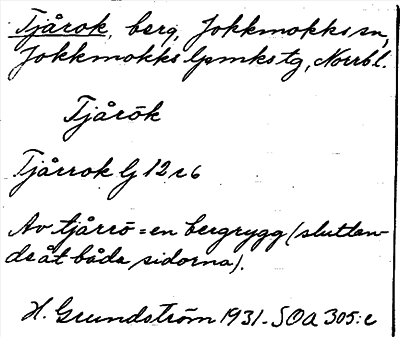 Tjårok, berg, Jokkmokks sn,
Jokkmokks lpmks tg, Norrb l.
Tjårök
Tjårrok Lj 12 r 6
Av tjårrō = en bergrygg (sluttan-
de åt båda sidorna).
H. Grundström 1931. SOA 305:c